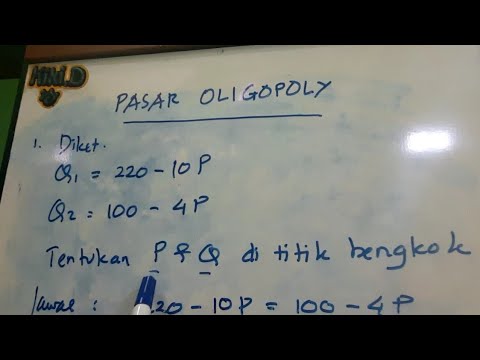 HIMI.D
PASAR OLIGOPOLY
1. Diket.
Q1 = 220 - 10P
Q2 = 100 - 4P
Tentukan P & Q di titik bengkok
Jawab : 220 - 10P = 100 - 4P